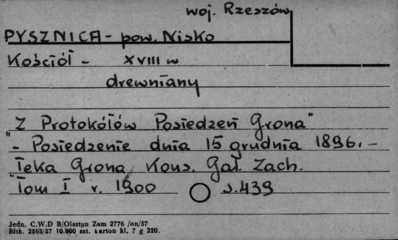 woj. Rzeszów
PYSZNICA - pow. Nisko
Kościół - XVIII w
drewniany
"Z Protokółów Posiedzeń Grona"
"- Posiedzenie dnia 15 grudnia 1896. -
Teka Grona Kons. Gal. Zach.
"Tom I r. 1900 s. 439
Jedn. C.W.D B/Olsztyn Zam 2776 /on/57
Bltk. 2563/57 10.000 szt. karton kl. 7 g 220.